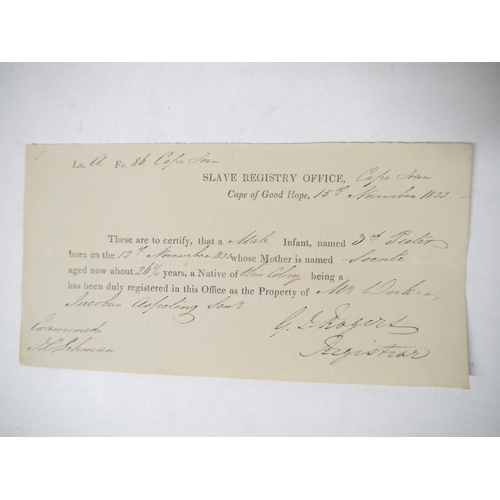 La. A Fo. 86 Cape Town
SLAVE REGISTRY OFFICE, Cape Town
Cape of Good Hope, 15th November 1833
These are to certify, that a Male Infant, named 3rd Pieter
born on the 12th November 1833 whose Mother is named
aged now about 26 years, a Native of this Colony being a
has been duly registered in this Office as the Property of Mr
Jacobus Aspeling Senr
Examined
G. J. Rogers
Registrar